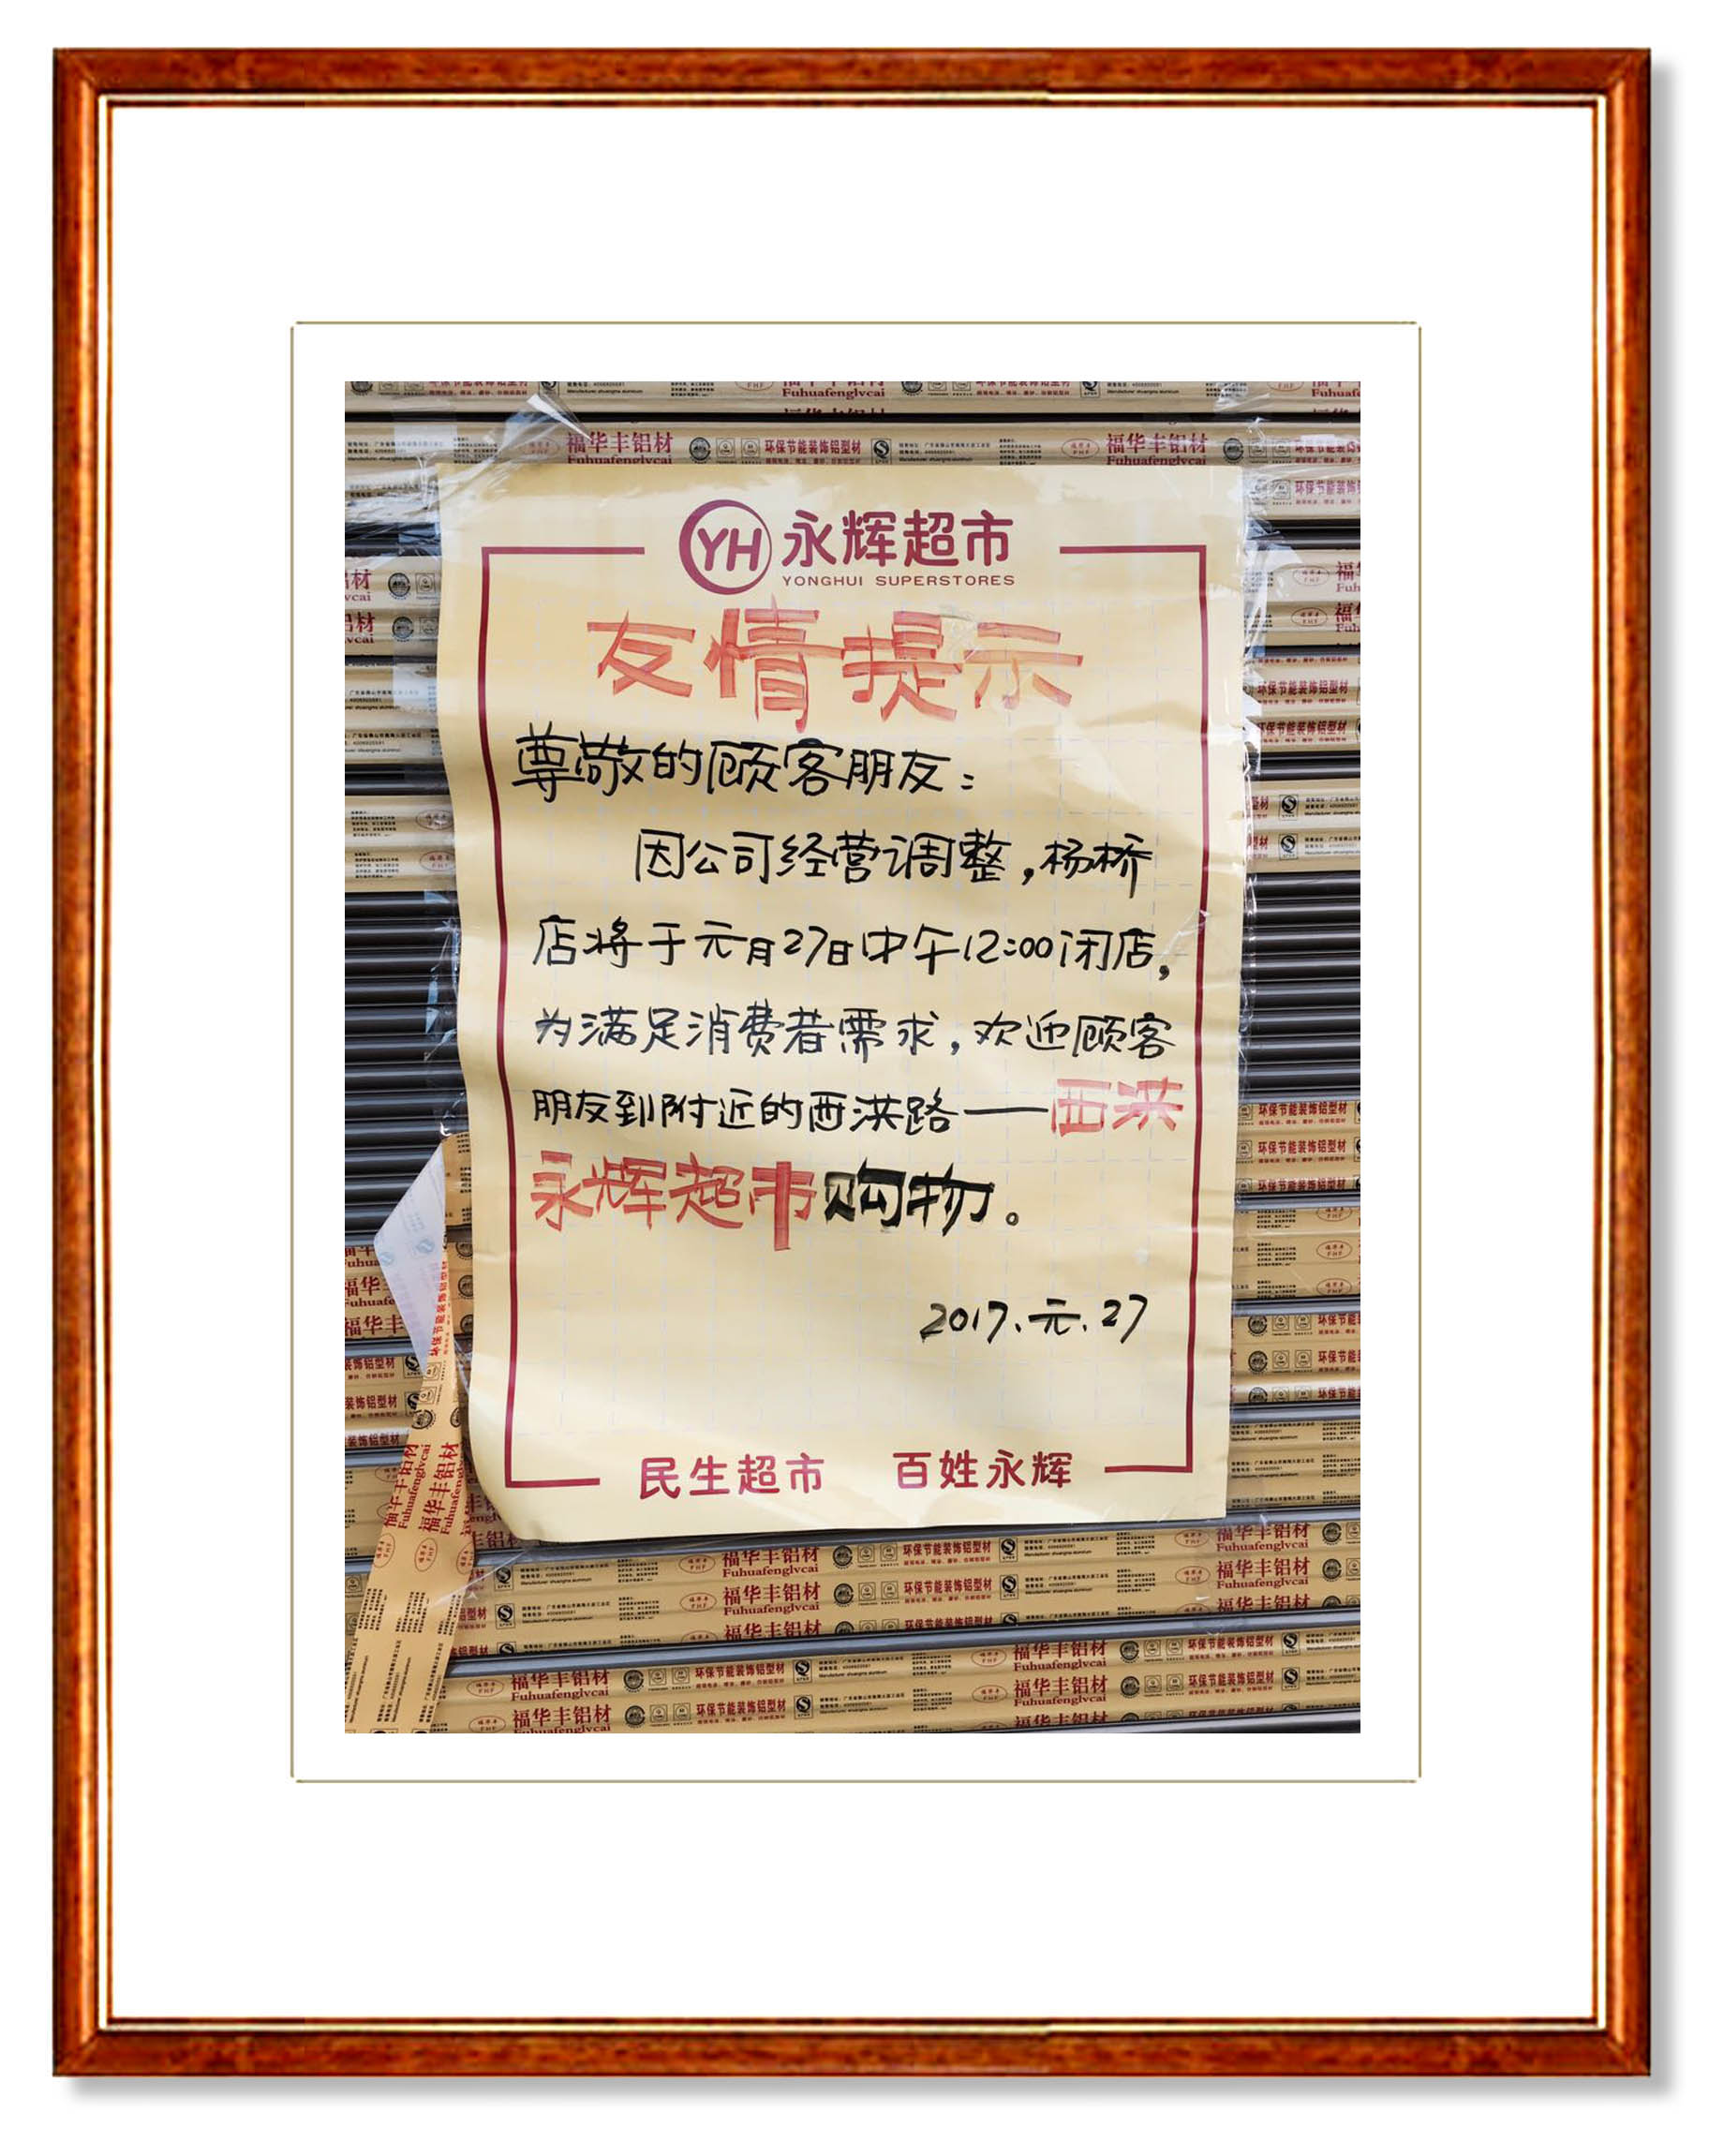 永辉超市
YONGHUI SUPERSTORES
友情提示
尊敬的顾客朋友：
因公司经营调整，杨桥
店将于元月27日中午12:00闭店，
为满足消费者需求，欢迎顾客
朋友到附近的西洪路——西洪
永辉超市购物。
2017.元.27
民生超市 百姓永辉
福华丰铝材
Fuhuafenglvcai
环保节能装饰铝型材